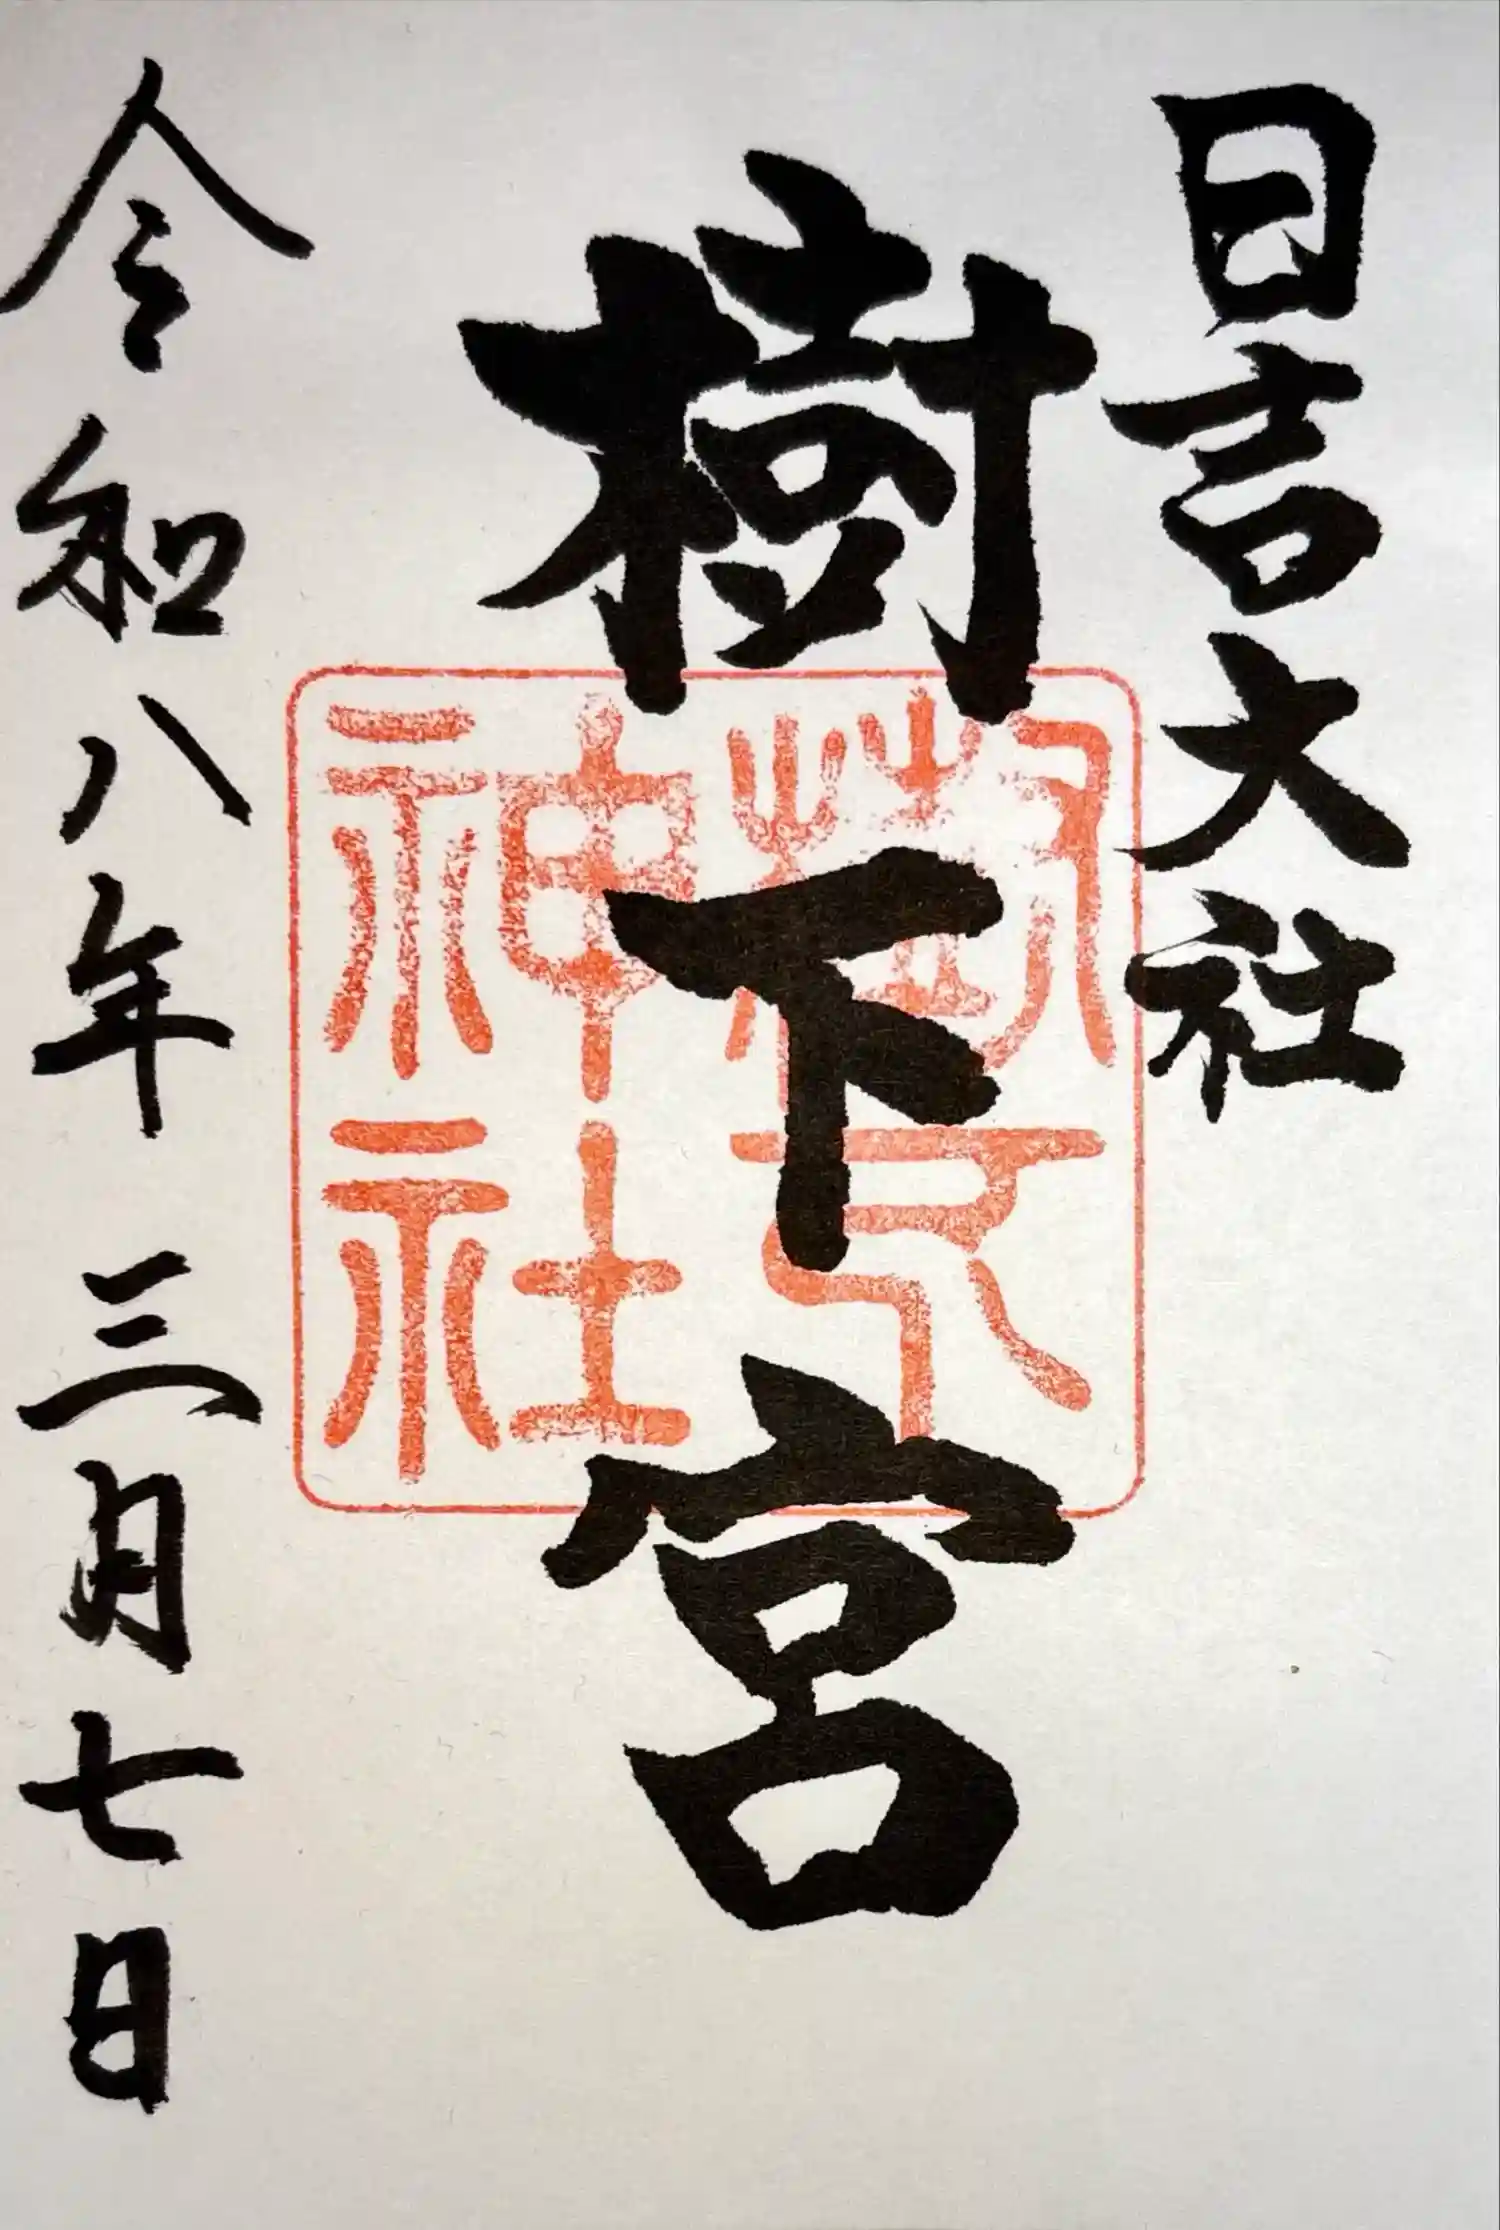 日吉大社
樹下宮
樹下神社
令和八年三月七日